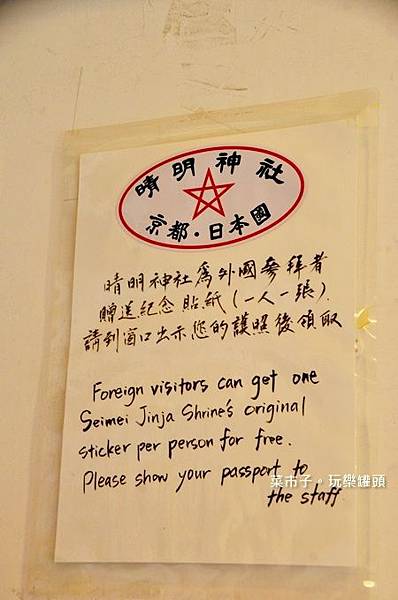 晴明神社
京都・日本國
晴明神社為外國參拜者
贈送紀念貼紙(一人一張).
請到窗口出示您的護照後領取
Foreign visitors can get one
Seimei Jinja Shrine's original
sticker per person for free.
Please show your passport to
the staff
菜市子。玩樂罐頭